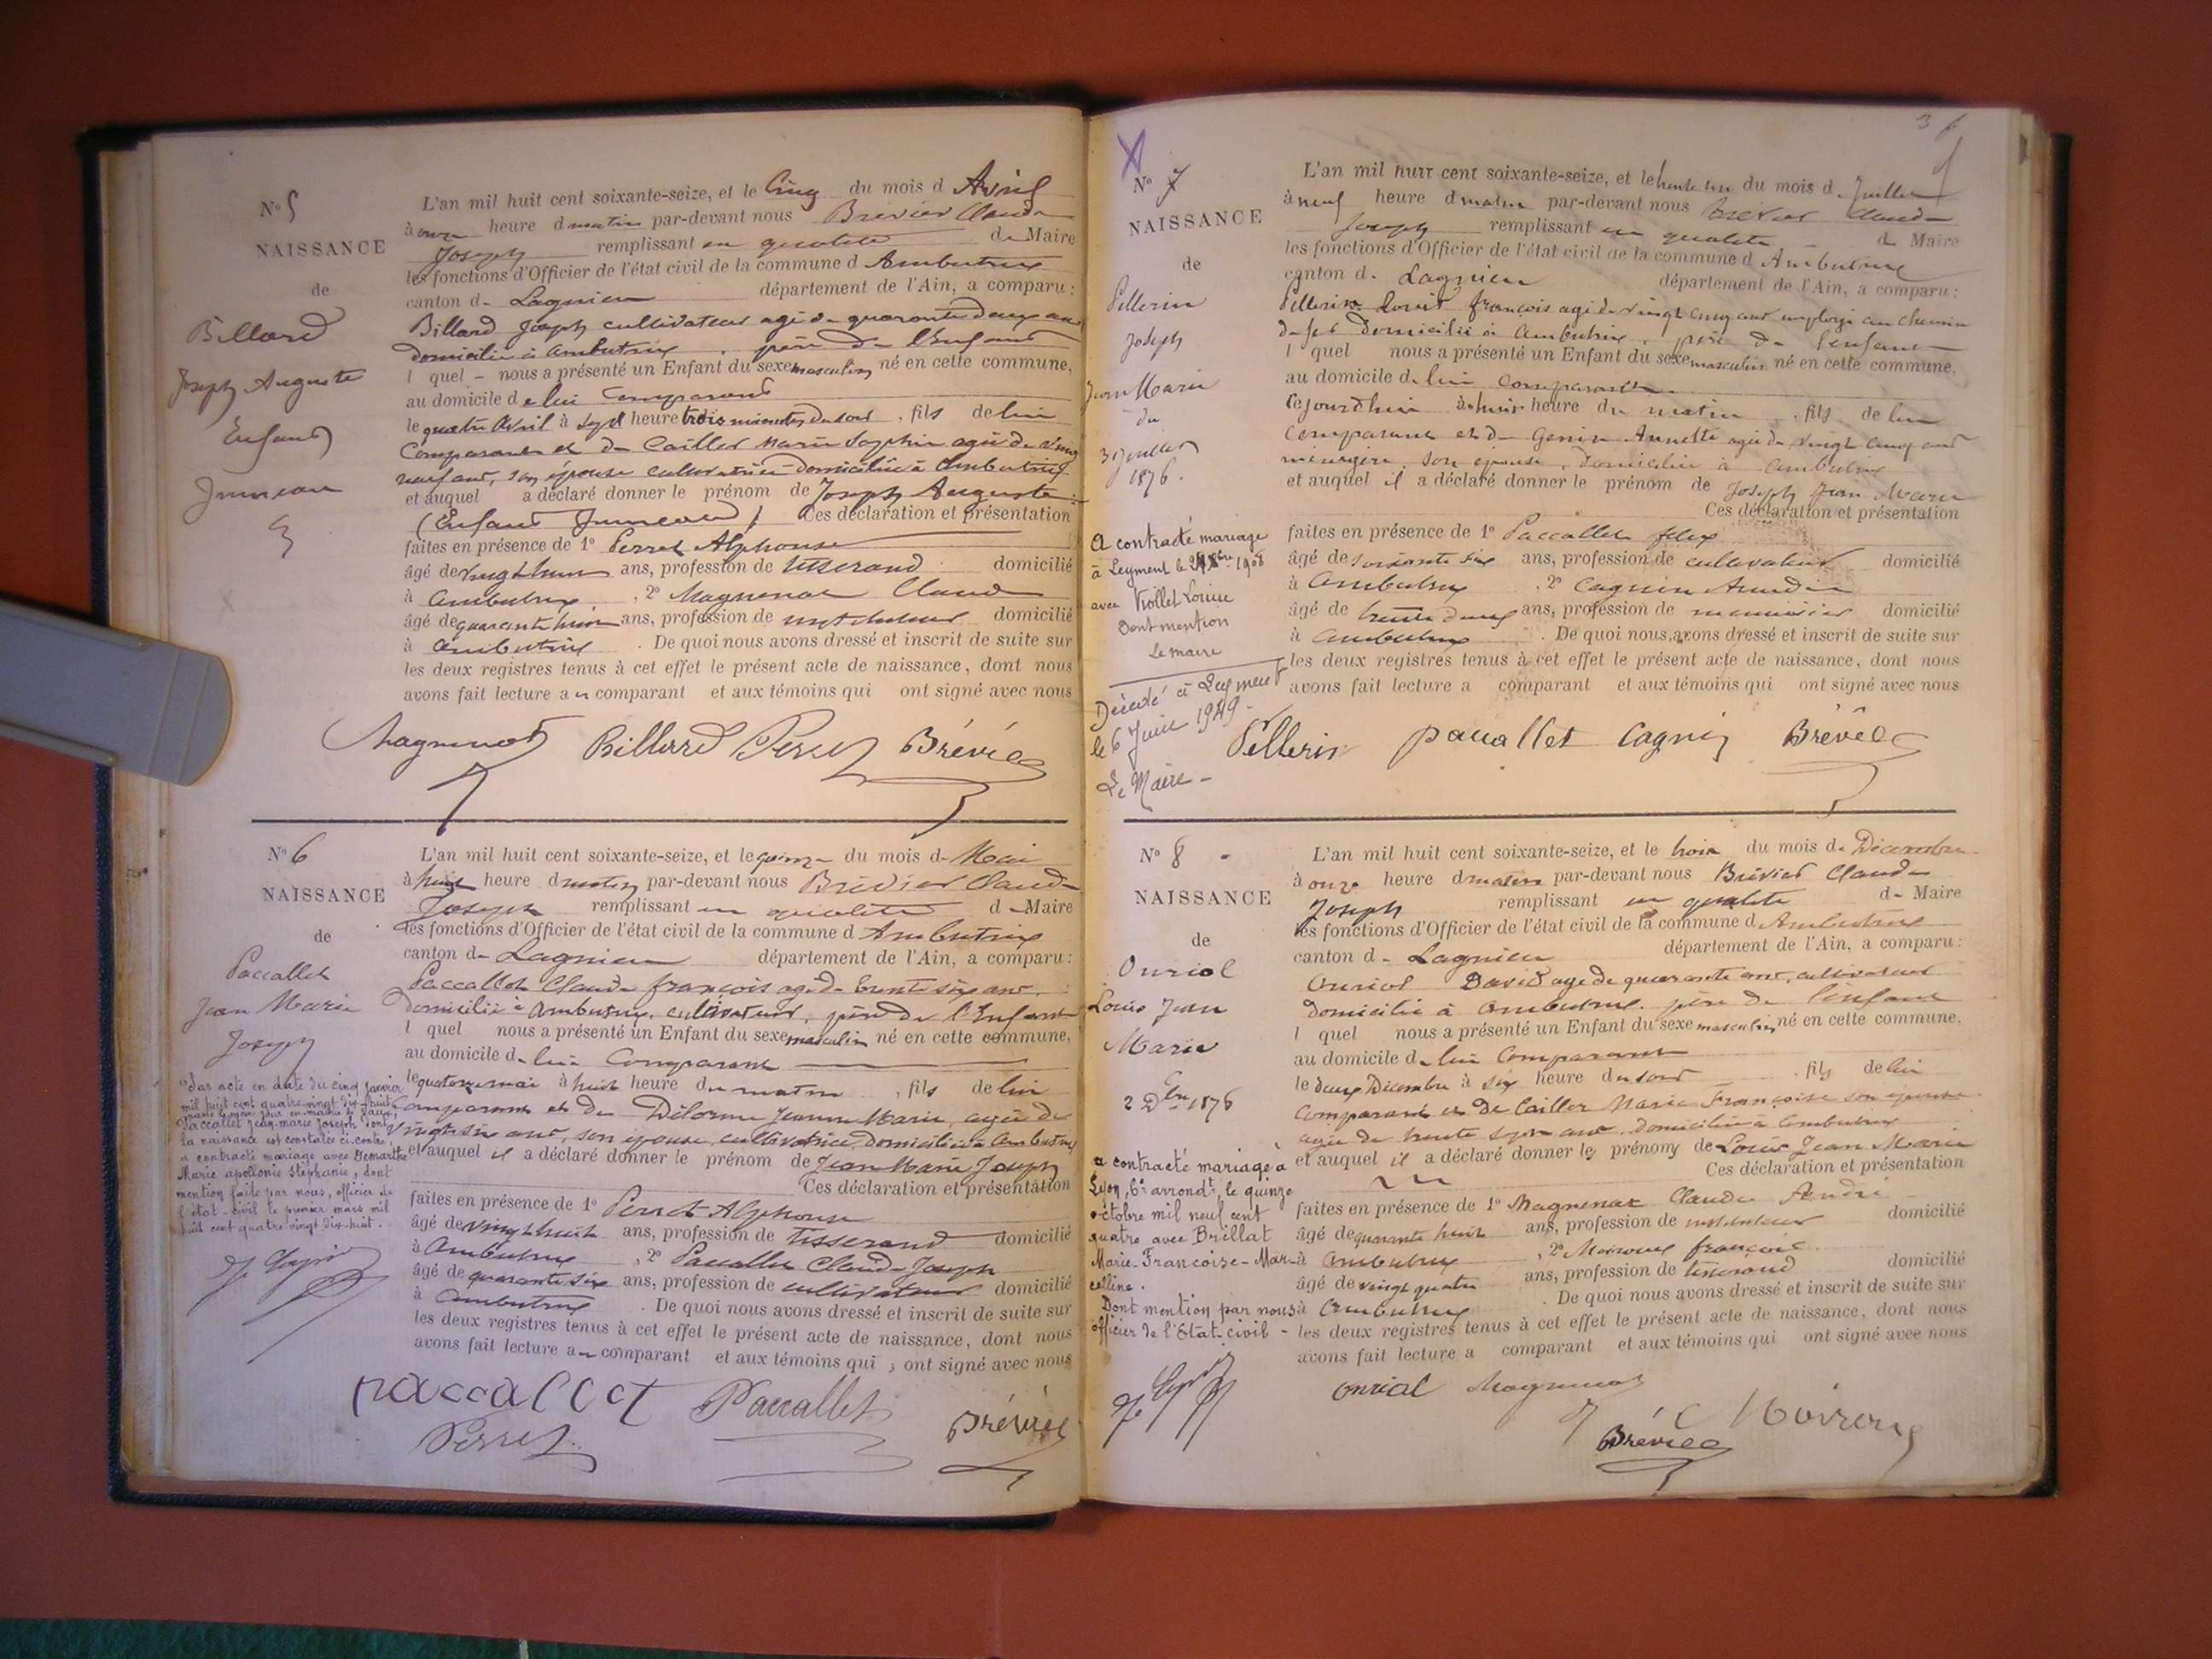 N° 5
NAISSANCE
de
Billard
Joseph Auguste
Enfant
Jumeau
L'an mil huit cent soixante-seize, et le Cinq du mois d Avril
à onze heure d matin par-devant nous Brévier Claude
Joseph remplissant en qualité de Maire
les fonctions d'Officier de l'état civil de la commune d Ambutrix
canton de Lagnieu département de l'Ain, a comparu :
Billard Joseph cultivateur agé de quarante deux ans
domicilié à Ambutrix, père de l'Enfant
l quel nous a présenté un Enfant du sexe masculin né en cette commune,
au domicile de lui Comparant
le quatre Avril à sept heure trois minutes du soir, fils de lui
Comparant et de Cailler Marie Sophie agée de vingt
neuf ans, son épouse cultivatrice domiciliée à Ambutrix
et auquel a déclaré donner le prénom de Joseph Auguste
(Enfant Jumeau) Ces déclaration et présentation
faites en présence de 1° Perret Alphonse
âgé de vingt huit ans, profession de tisserand domicilié
à Ambutrix, 2° Magnenat Claude
âgé de quarante huit ans, profession de instituteur domicilié
à Ambutrix. De quoi nous avons dressé et inscrit de suite sur
les deux registres tenus à cet effet le présent acte de naissance, dont nous
avons fait lecture au comparant et aux témoins qui ont signé avec nous
Magnenat Billard Perret Brévier
N° 6
NAISSANCE
de
Paccallet
Jean Marie
Joseph
Par acte en date du cinq janvier
mil huit cent quatre-vingt dix-huit
Paccallet Jean-marie Joseph dont
la naissance est constatée ci-contre,
a contracté mariage avec Demarthe
Marie apollonie Stéphanie, dont
mention faite par nous, officier de
l'état-civil le premier mars mil
huit cent quatre vingt dix-huit.
L'an mil huit cent soixante-seize, et le quinze du mois de Mai
à huit heure d matin par-devant nous Brévier Claude
Joseph remplissant en qualité d Maire
les fonctions d'Officier de l'état civil de la commune d Ambutrix
canton de Lagnieu département de l'Ain, a comparu :
Paccallet Claude françois agé de trente six ans
domicilié à Ambutrix, cultivateur, père de l'Enfant
l quel nous a présenté un Enfant du sexe masculin né en cette commune,
au domicile de lui Comparant
le quatorze mai à huit heure du matin, fils de lui
Comparant et de Délorme Jeanne Marie, agée de
vingt six ans, son épouse, cultivatrice domiciliée à Ambutrix
et auquel il a déclaré donner le prénom de Jean Marie Joseph
Ces déclaration et présentation
faites en présence de 1° Perret Alphonse
âgé de vingt huit ans, profession de tisserand domicilié
à Ambutrix, 2° Paccallet Claude Joseph
âgé de quarante six ans, profession de cultivateur domicilié
à Ambutrix. De quoi nous avons dressé et inscrit de suite sur
les deux registres tenus à cet effet le présent acte de naissance, dont nous
avons fait lecture au comparant et aux témoins qui, ont signé avec nous
paccallet Paccallet Brévier
Perret
N° 7
NAISSANCE
de
Pellerin
Joseph
Jean Marie
du
31 Juillet
1876.
A contracté mariage
à Leyment le 1908
avec Viollet Louise
Dont mention
Le maire
Décédé à Leyment
le 6 Juin 1949.
Le Maire -
L'an mil huit cent soixante-seize, et le trente un du mois de Juillet
à neuf heure d matin par-devant nous Brévier Claude
Joseph remplissant en qualité de Maire
les fonctions d'Officier de l'état civil de la commune d Ambutrix
canton de Lagnieu département de l'Ain, a comparu :
Pellerin Louis françois agé de vingt cinq ans employé au chemin
de fer domicilié à Ambutrix, père de l'enfant
l quel nous a présenté un Enfant du sexe masculin né en cette commune,
au domicile de lui Comparant
cejourdhui à huit heure du matin, fils de lui
Comparant et de Genin Annette agée de vingt cinq ans
ménagère, son épouse, domiciliée à Ambutrix
et auquel il a déclaré donner le prénom de Joseph Jean Marie
Ces déclaration et présentation
faites en présence de 1° Paccallet felix
âgé de soixante six ans, profession de cultivateur domicilié
à Ambutrix, 2° Cagnin
âgé de trente deux ans, profession de menuisier domicilié
à Ambutrix. De quoi nous avons dressé et inscrit de suite sur
les deux registres tenus à cet effet le présent acte de naissance, dont nous
avons fait lecture a comparant et aux témoins qui ont signé avec nous
Pellerin paccallet Cagnin Brévier
N° 8
NAISSANCE
de
Ouriol
Louis Jean
Marie
2 Dbre 1876
a contracté mariage à
Lyon, 6e arrondt, le quinze
octobre mil neuf cent
quatre avec Brillat
Marie-Françoise-Mar-
celline.
Dont mention par nous
officier de l'Etat-civil -
L'an mil huit cent soixante-seize, et le trois du mois de Décembre
à onze heure d matin par-devant nous Brévier Claude
Joseph remplissant en qualité de Maire
les fonctions d'Officier de l'état civil de la commune d Ambutrix
canton de Lagnieu département de l'Ain, a comparu :
Ouriol David agé de quarante ans, cultivateur
domicilié à Ambutrix, père de l'enfant
l quel nous a présenté un Enfant du sexe masculin né en cette commune,
au domicile de lui Comparant
le deux Décembre à six heure du soir, fils de lui
Comparant et de Cailler Marie Françoise son épouse
agée de trente sept ans domiciliée à Ambutrix
et auquel il a déclaré donner le prénom de Louis Jean Marie
Ces déclaration et présentation
faites en présence de 1° Magnenat Claude André
âgé de quarante huit ans, profession de instituteur domicilié
à Ambutrix, 2° françois
âgé de vingt quatre ans, profession de tisserand domicilié
à Ambutrix. De quoi nous avons dressé et inscrit de suite sur
les deux registres tenus à cet effet le présent acte de naissance, dont nous
avons fait lecture a comparant et aux témoins qui ont signé avec nous
ouriol Magnenat
Brévier